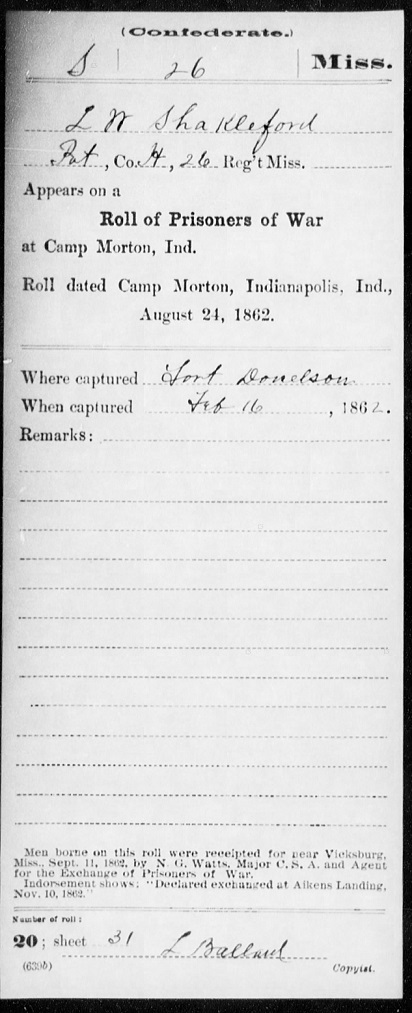 (Confederate.)
S | 26 | Miss.
L W Shakleford
Pvt, Co. H, 26 Reg't Miss.
Appears on a
Roll of Prisoners of War
at Camp Morton, Ind.
Roll dated Camp Morton, Indianapolis, Ind.,
August 24, 1862.
Where captured Fort Donelson
When captured Feb 16, 1862.
Remarks:
Men borne on this roll were receipted for near Vicksburg,
Miss., Sept. 11, 1862, by N. G. Watts, Major C. S. A. and Agent
for the Exchange of Prisoners of War.
Indorsement shows: "Declared exchanged at Aikens Landing,
Nov. 10, 1862."
Number of roll:
20; sheet 31 L Ballard
(639b) Copyist.